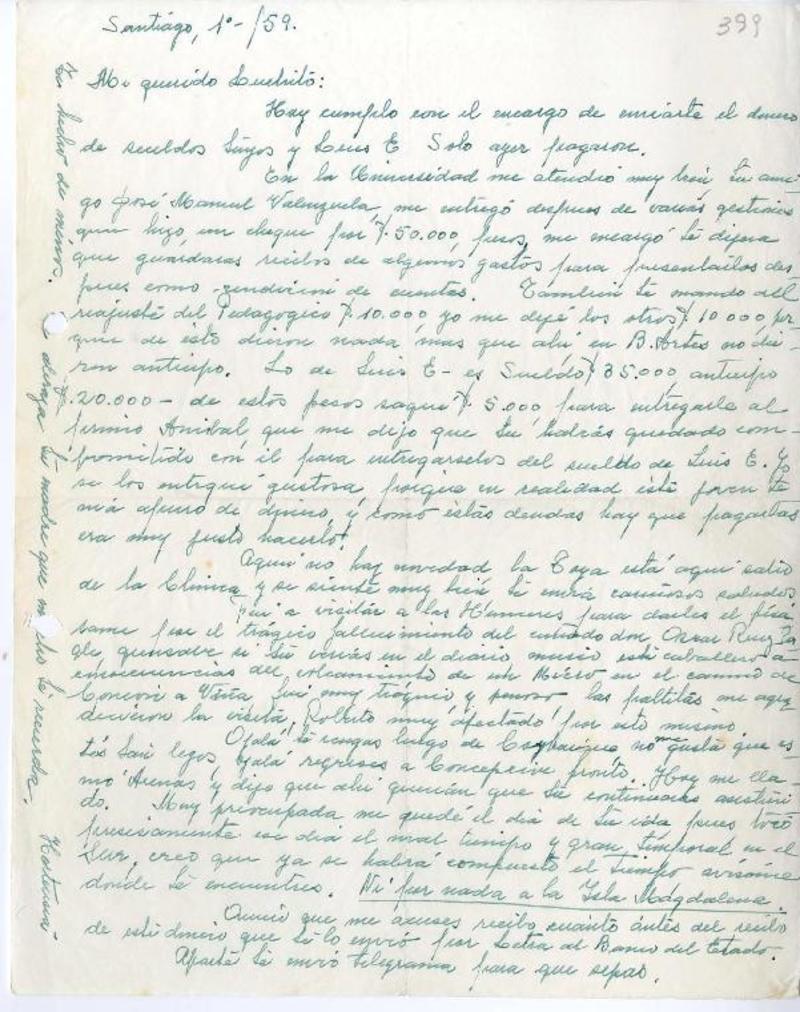 Santiago, 1º-/59.
399
Mi querido Luchito:
Hoy cumplo con el encargo de enviarte el dinero
de sueldos tuyos y Luis E Solo ayer pagaron.
En la Universidad me atendió muy bien tu ami-
go José Manuel Valenzuela, me entregó despues de varias gestiones
que hizo un cheque por $.50.000, pesos, me encargó te dijera
que guardaras recibos de algunos gastos para presentarlos des
pues como rendición de cuentas. Tambien te mando del
reajuste del Pedagogico $.10.000 yo me dejé los otros $ 10 000 por
que de esto dieron nada mas que ahi en B. Artes no die-
ron anticipo. Lo de Luis E- es Sueldo $ 35.000, anticipo
$.20.000 - de estos pesos saqué $. 5.000, para entregarle al
primio Anibal que me dijo que tu habrás quedado com-
prometido con él para entregarselos del sueldo de Luis E. Yo
se los entregué gustosa, porque en realidad este joven te
nia apuro de dinero, y como estas deudas hay que pagarlas
era muy justo hacerlo.
Aqui no hay novedad la Toya está aqui salió
de la Clinica y se siente muy bien te envia cariñosos saludos
Fui a visitar a las Humeres para darles el pésa
same por el trágico fallecimiento del cuñado don Oscar Ruiz
si tu verias en el diario murió este caballero a
consecuencias del volcamiento de un Micro en el camino de
Concón a Viña fué muy trágico y penoso, las
decieron la visita, Roberto muy afectado por esto mismo.
Ojalá te vengas luego de Coyhaique no me gusta que es-
tés tan lejos, ojalá regreses a Concepción pronto. Hoy me lla-
mó Arenas y dijo que ahi querian que tu continuaras asistien
do. Muy preocupada me quedé el dia de tu ida pues tocó
presisamente ese dia el mal tiempo y gran temporal en el
Sur, creo que ya se habrá compuesto el tiempo avisame
donde te encuentres. Ni por nada a la Isla Magdalena.
Ansio que me acuses recibo cuanto ántes del recibo
de este dinero que te lo envió por Letra al Banco del Estado.
Aparte te envió telegrama para que sepas.
Te hecho de menos.
tu madre que mucho te recuerda.
Hortensia-